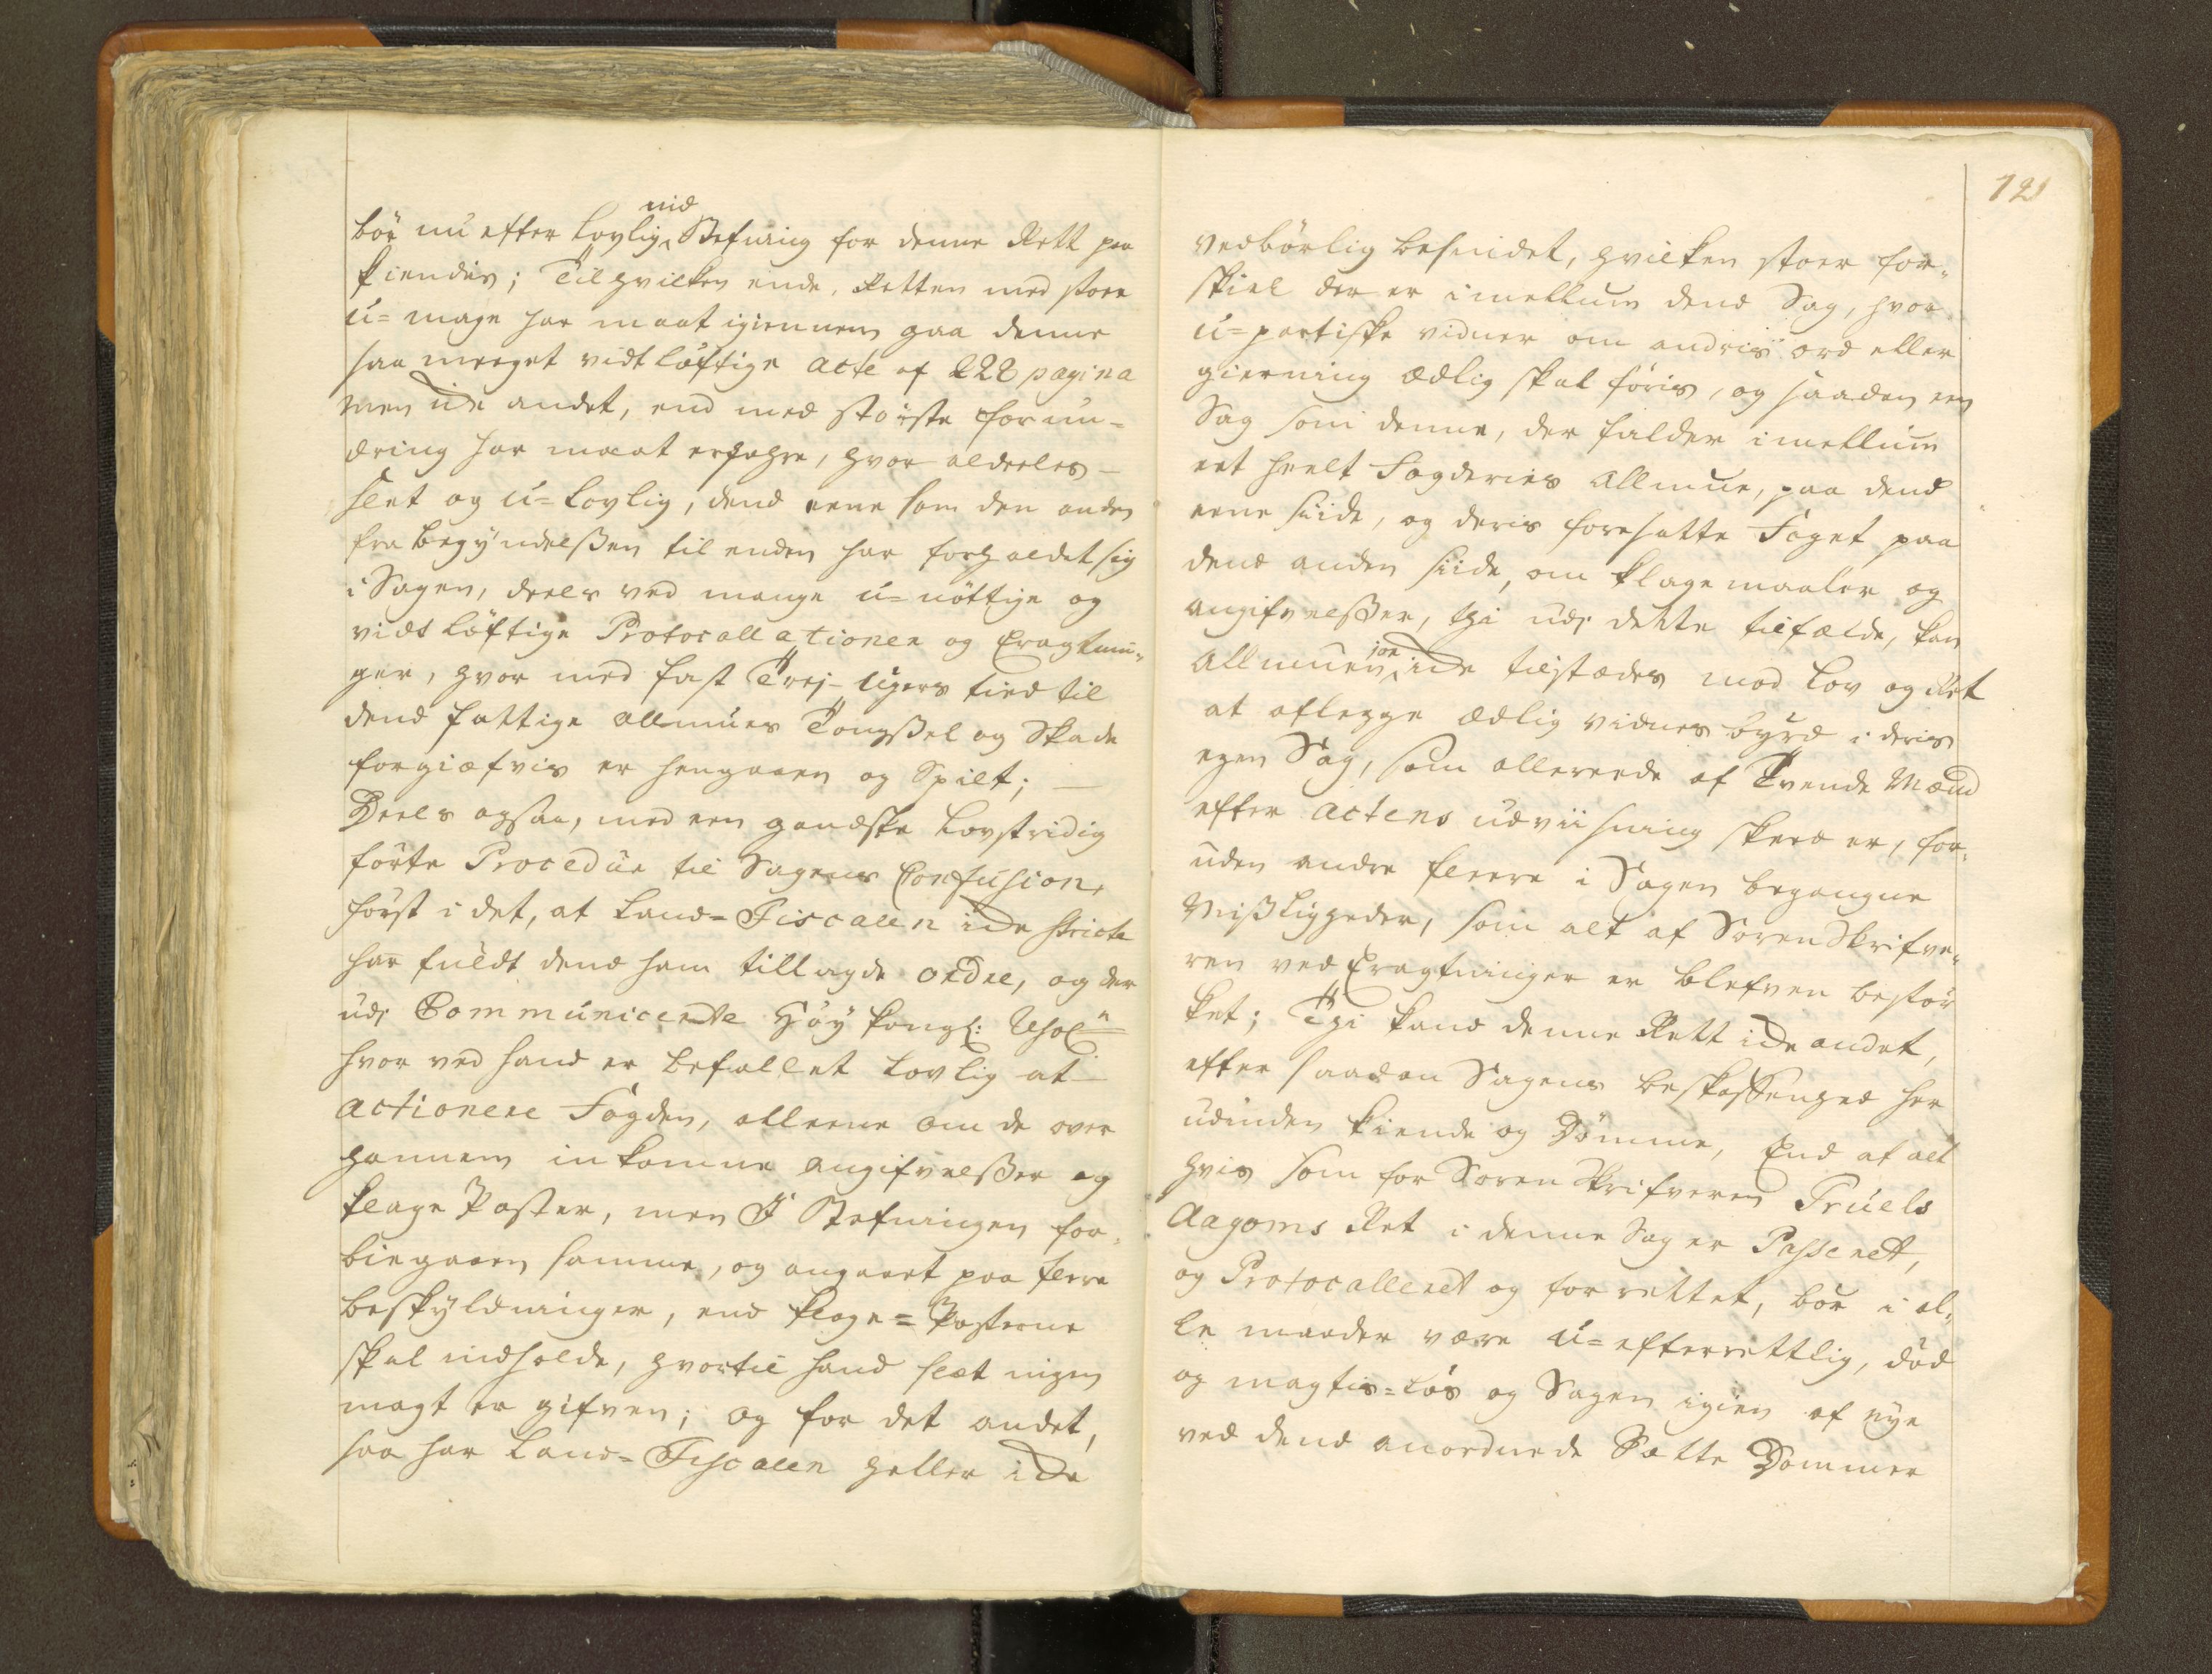 bör nu efter lovlig ind Stefning for denne Rett paa
kiendis; Til hvilken ende, Retten med stoer
u-mage har maat igiennem gaa denne
saa meeget vidtløftige Acte af 228 pagina
men icke andet, end med største forun-
dring har maat erfahre, hvor aldeeles
slet og u-lovlig, dend eene som den anden
fra begÿndelßen til enden har forholdet sig
i Sagen, deels ved mange u-nöttige og
vidtlöftige Protocollationer og Eragtnin-
ger, hvor med fast Trej-Ugers tiid til
dend fattige allmues Tongßel og Skade
forgiæfvis er hengaaen og Spilt;
Deels ogsaa, med een gandske lovstridig
förte Procedur til Sagens Confusion,
först i det, at Land-Fiscalen icke stricte
har fuldt dend ham tillagde ordre, og der
udj Communicerte Höÿ kongl:
hvor ved hand er befallet lovlig at
actionere Fogden, alleene om de over
hannem inkomne angifvelßer og
klage Poster, men J Stefningen for-
biegaaen samme, og angaaet paa flere
beskÿldninger, end klage-Posterne
skal indholde, hvortil hand slet ingen
magt er gifven; og for det andet,
saa har Land-Fiscalen heller icke
121
vedbörlig besindet, hvilken stoer for-
skiel der er imellum dend Sag, hvor
u-partiske vidner om andris ord eller
gierning Ædlig skal föris, og saadan een
Sag som denne, der falder imellum
eet heelt Fogderies Allmue, paa dend
eene siide, og deris foresatte Foget paa
dend anden siide, om klagemaaler og
angifvelßer, thi udj dette tilfælde, kan
Allmuen joe icke tilstædes mod Lov og Ret
at aflegge Ædlig vidnesbyrd i deris
egen Sag, som allereede af Tvende Mænd
efter Actens udviisning skeed er, for-
uden andre fleere i Sagen begangne
Mißligheder, som alt af Sorenskrifve-
ren ved Eragtninger er blefven bestör-
ket; Thi kand denne Rett icke andet,
efter saadan Sagens beskaffenhed her
udinden kiende og Dömme, End at alt
hvis som for Sorenskrifveren Truels
Aagoms Ret i denne Sag er Passeret,
og Protocalleret og forrettet, bör i al-
le maader være u-efterrettlig, död
og magtis-lös og Sagen igien af nÿe
ved dend anordnede Sætte Dommer